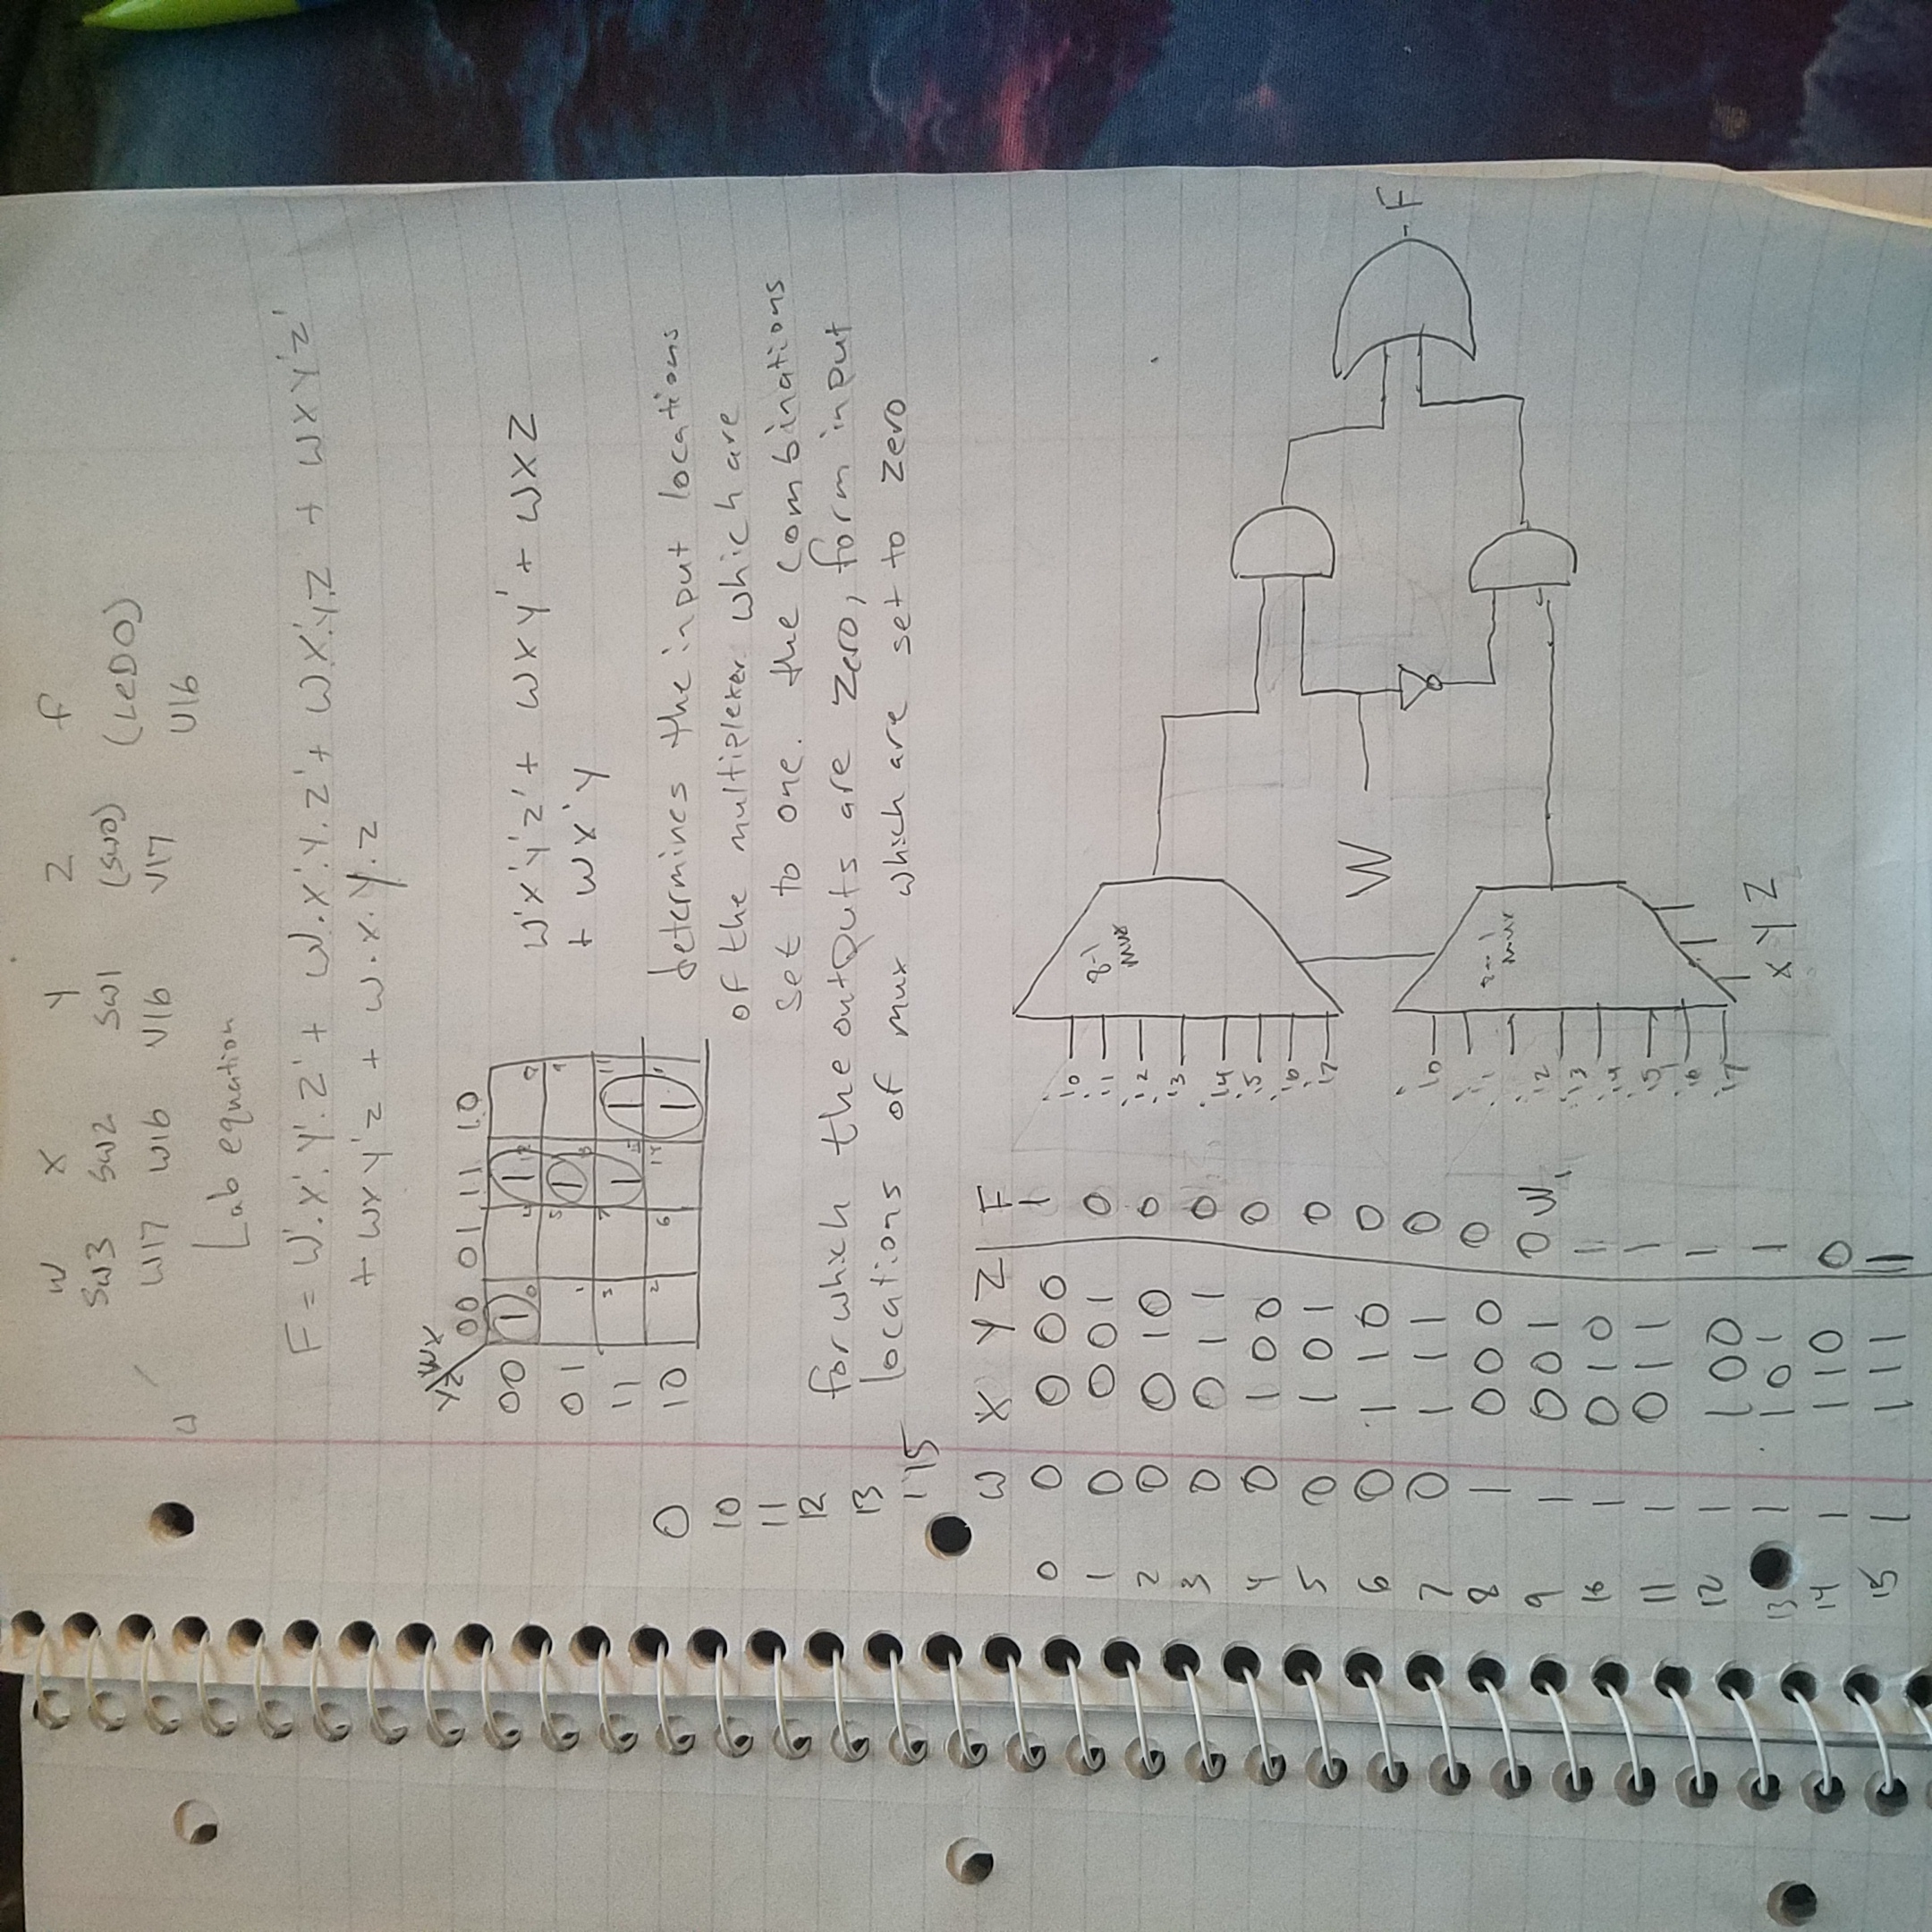 W X Y Z f
SW3 SW2 SW1 (SW0) (LeD0)
W17 W16 V16 V17 U16
Lab equation
F = W'.X'.Y'.Z' + W.X'.Y.Z' + WX'.Y.Z + WXY'Z'
+ WXY'Z + W.X.Y.Z
YZ WX
00 01 11 10
00 1 0 4 1 12 8
01 1 5 1 13 9
11 3 7 1 15 1 11
10 2 6 14 1
W'X'Y'Z' + WXY' + WXZ
+ WX'Y
0
10
11
12
13
15
determines the input locations
of the multiplexer which are
set to one. the combinations
for which the outputs are zero, form input
locations of mux which are set to zero
W X Y Z F
0 0 0 0 0 1
1 0 0 0 1 0
2 0 0 1 0 0
3 0 0 1 1 0
4 0 1 0 0 0
5 0 1 0 1 0
6 0 1 1 0 0
7 0 1 1 1 0
8 1 0 0 0 0
9 1 0 0 1 0 W
10 1 0 1 0 1
11 1 0 1 1 1
12 1 1 0 0 1
13 1 1 0 1 1
14 1 1 1 0 0
15 1 1 1 1 1
i0
i1
i2
i3
i4
i5
i6
i7
8-1
mux
W
F
i0
i1
i2
i3
i4
i5
i6
i7
8-1
mux
X Y Z